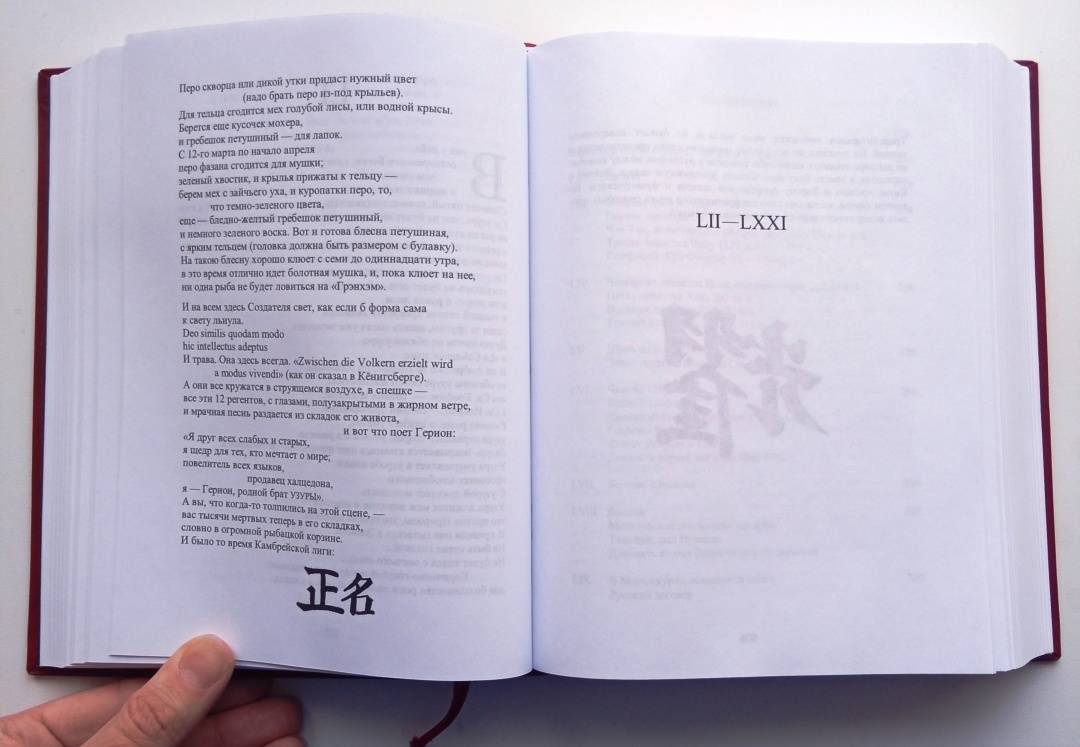 Перо скворца или дикой утки придаст нужный цвет
(надо брать перо из-под крыльев).
Для тельца сгодится мех голубой лисы, или водной крысы.
Берется еще кусочек мохера,
и гребешок петушиный — для лапок.
С 12-го марта по начало апреля
перо фазана сгодится для мушки;
зеленый хвостик, и крылья прижаты к тельцу —
берем мех с зайчьего уха, и куропатки перо, то,
что темно-зеленого цвета,
еще — бледно-желтый гребешок петушиный,
и немного зеленого воска. Вот и готова блесна петушиная,
с ярким тельцем (головка должна быть размером с булавку).
На такою блесну хорошо клюет с семи до одиннадцати утра,
в это время отлично идет болотная мушка, и, пока клюет на нее,
ни одна рыба не будет ловиться на «Грэнхэм».
И на всем здесь Создателя свет, как если б форма сама
к свету льнула.
Deo similis quodam modo
hic intellectus adeptus
И трава. Она здесь всегда. «Zwischen die Volkern erzielt wird
a modus vivendi» (как он сказал в Кёнигсберге).
А они все кружатся в струящемся воздухе, в спешке —
все эти 12 регентов, с глазами, полузакрытыми в жирном ветре,
и мрачная песнь раздается из складок его живота,
и вот что поет Герион:
«Я друг всех слабых и старых,
я щедр для тех, кто мечтает о мире;
повелитель всех языков,
продавец халцедона,
я — Герион, родной брат УЗУРЫ».
А вы, что когда-то толпились на этой сцене, —
вас тысячи мертвых теперь в его складках,
словно в огромной рыбацкой корзине.
И было то время Камбрейской лиги:
正名
LII—LXXI